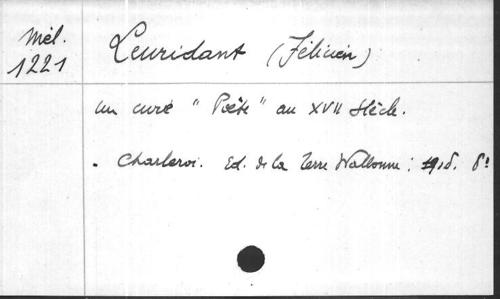 Mél.
1221
Leuridant (Félicien)
un curé "Poète" au XVII Siècle.
- Charleroi. Ed. de la Terre Wallonne; 8°